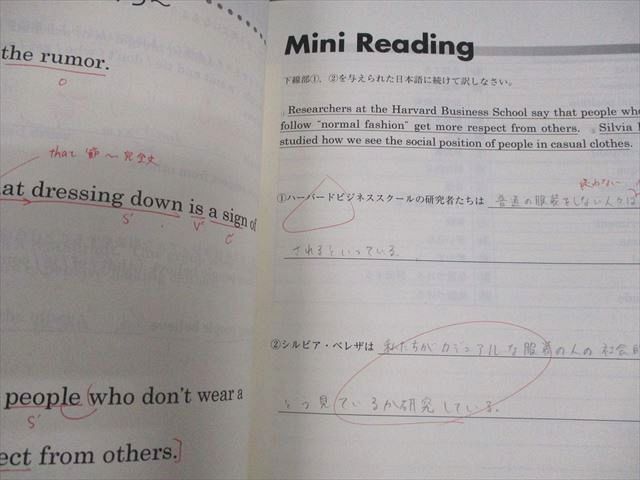 the rumor.
O
that 節〜完全文
at dressing down is a sign of
S' V' C'
people who don't wear a
S'
ect from others.]
Mini Reading
下線部①、②を与えられた日本語に続けて訳しなさい。
①Researchers at the Harvard Business School say that people who
follow "normal fashion" get more respect from others. ②Silvia
studied how we see the social position of people in casual clothes.
従わない
①ハーバードビジネススクールの研究者たちは 普通の服装をしない人々は
されるといっている.
②シルビア・ベレザは 私たちがカジュアルな服装の人の社会的
どう見ているか研究している.